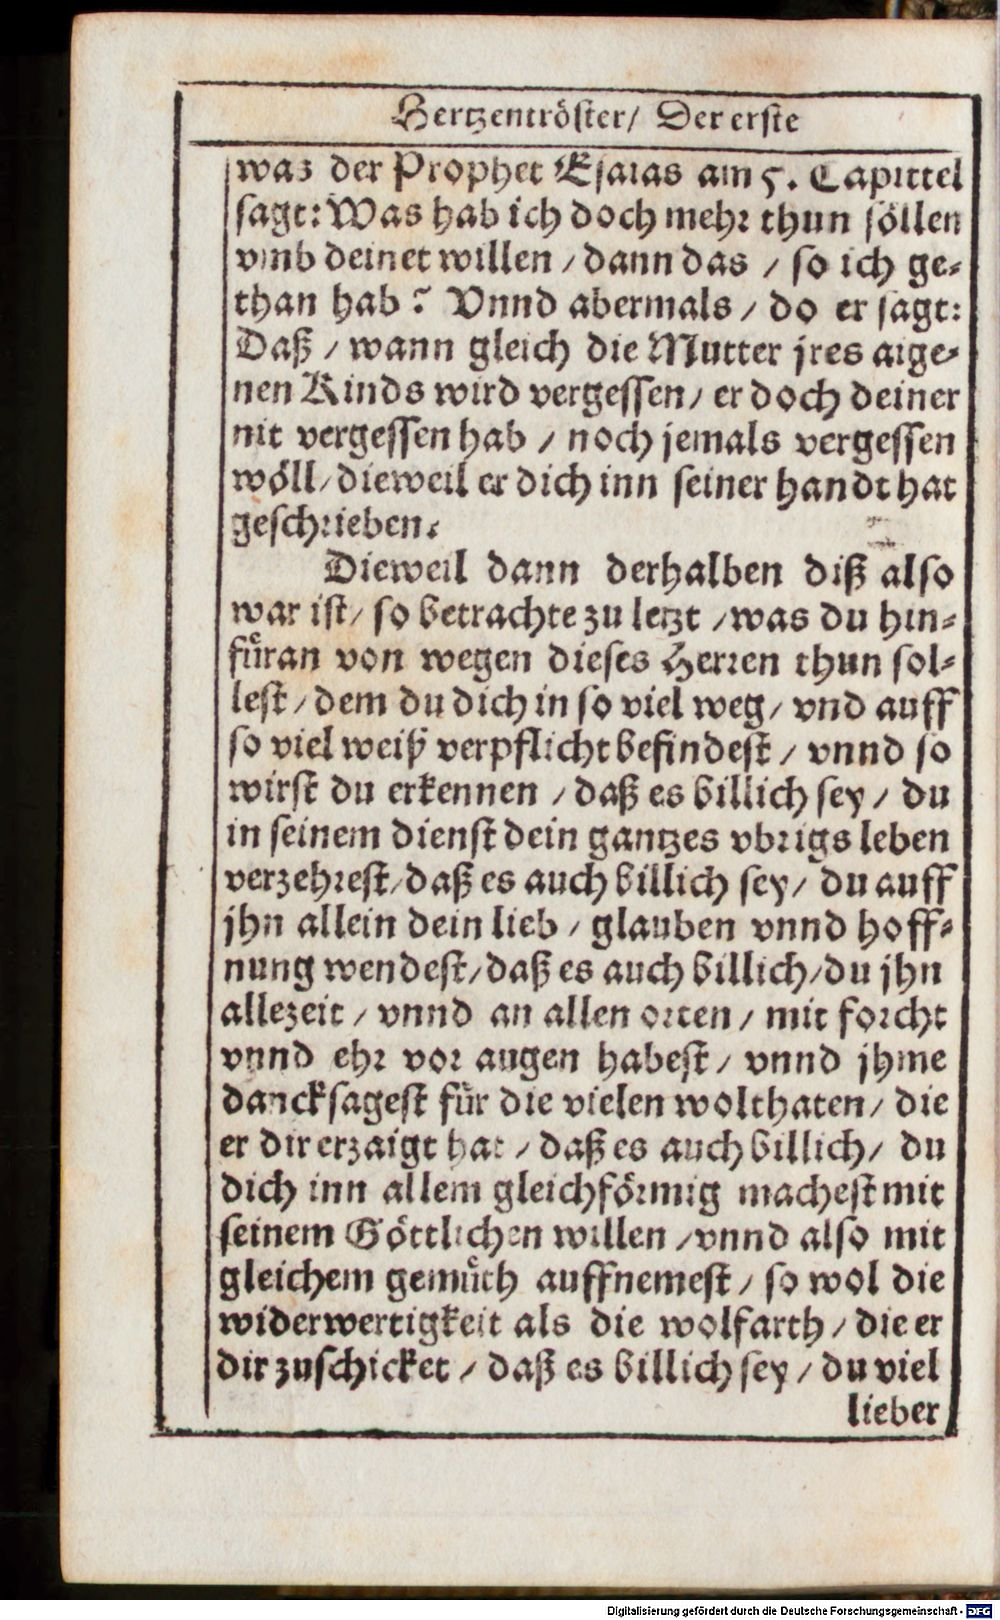 Hertzentröster/ Der erste
was der Prophet Esaias am 5. Capittel
sagt: Was hab ich doch mehr thun söllen
vmb deinet willen / dann das / so ich ge-
than hab? Vnnd abermals / do er sagt:
Daß / wann gleich die Mutter jres aige-
nen Kinds wird vergessen / er doch deiner
nit vergessen hab / noch jemals vergessen
wöll / dieweil er dich inn seiner handt hat
geschrieben.
Dieweil dann derhalben diß also
war ist / so betrachte zu letzt / was du hin-
füran von wegen dieses Herren thun sol-
lest / dem du dich in so viel weg / vnd auff
so viel weiß verpflicht befindest / vnnd so
wirst du erkennen / daß es billich sey / du
in seinem dienst dein gantzes vbrigs leben
verzehrest / daß es auch billich sey / du auff
jhn allein dein lieb / glauben vnnd hoff-
nung wendest / daß es auch billich / du jhn
allezeit / vnnd an allen orten / mit forcht
vnnd ehr vor augen habest / vnnd jhme
dancksagest für die vielen wolthaten / die
er dir erzaigt hat / daß es auch billich / du
dich inn allem gleichförmig machest mit
seinem Göttlichen willen / vnnd also mit
gleichem gemüth auffnemest / so wol die
widerwertigkeit als die wolfarth / die er
dir zuschicket / daß es billich sey / du viel
lieber
Digitalisierung gefördert durch die Deutsche Forschungsgemeinschaft - DFG